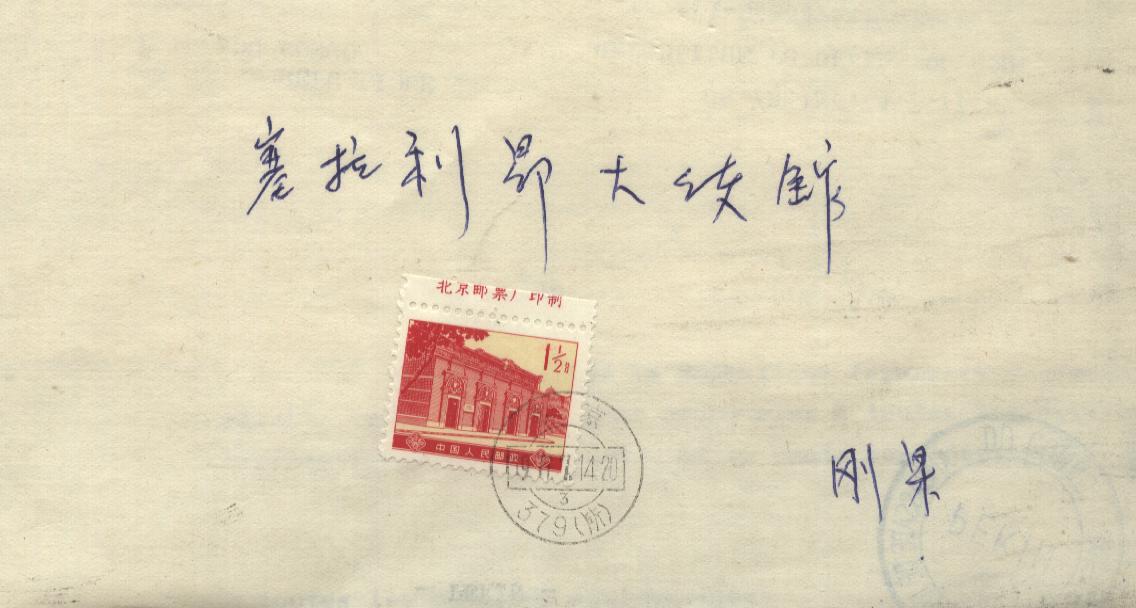 塞拉利昂大使館
北京邮票厂印制
1½分
中国人民邮政
14-20
3
379(所)
刚果
PEKIN